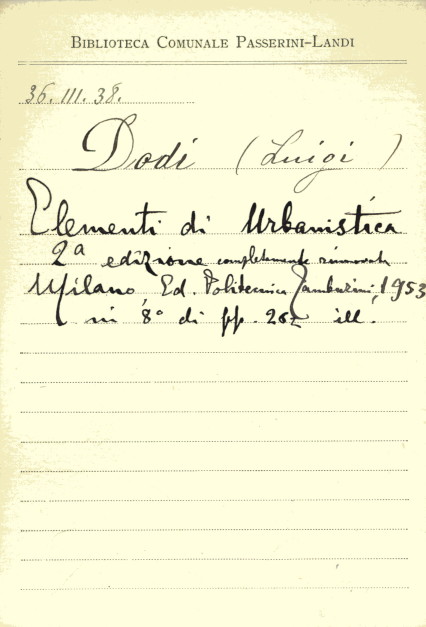 BIBLIOTECA COMUNALE PASSERINI-LANDI
36.III.38.
Dodi (Luigi)
Elementi di Urbanistica
2ª edizione completamente rinnovata
Milano, Ed. Politecnica Tamburini, 1953
in 8° di pp. 262 ill.